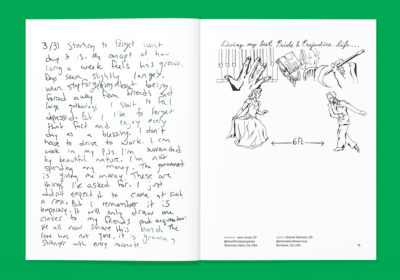 3/31 Starting to forget what
day it is. My concept of how
long a week feels has grown.
Days seem slightly larger,
when
forced away from friends and
large gatherings I start to feel
depressed. But I like to forget
that fact and enjoy every
day as a blessing. I don't
have to drive to work. I can
work in my PJs. I'm surrounded
by beautiful nature. I'm not
spending my money. The government
is giving me money! These are
things I've asked for. I just
didn't expect it to come at such
a cost. But I remember it is
temporary. It will only draw me
closer to my friends and
we all now share this bond. The
love has not gone, it is growing
stronger with every minute.
Living my best Pride & Prejudice life...
6ft